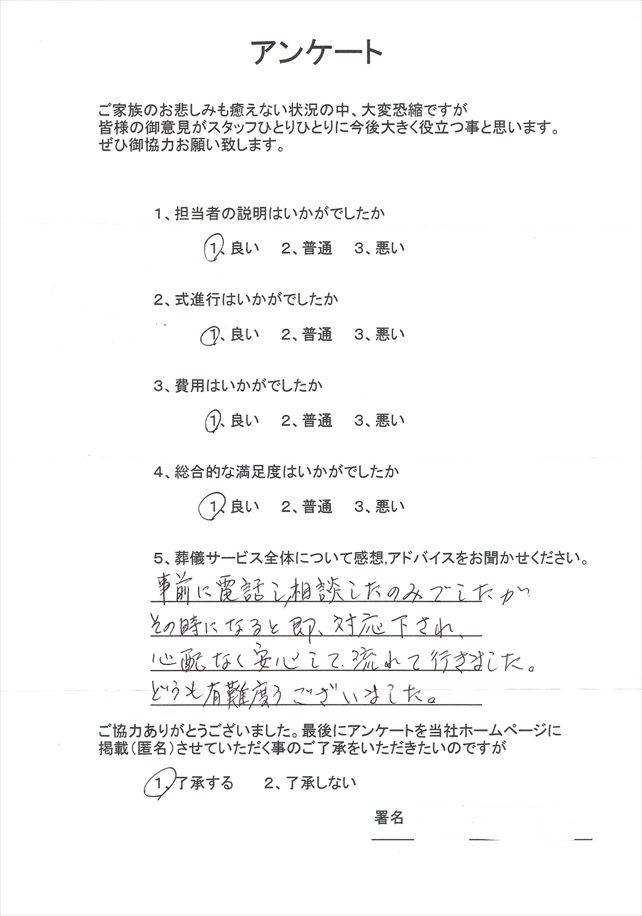 アンケート
ご家族のお悲しみも癒えない状況の中、大変恐縮ですが
皆様の御意見がスタッフひとりひとりに今後大きく役立つ事と思います。
ぜひ御協力お願い致します。
1、担当者の説明はいかがでしたか
1、良い 2、普通 3、悪い
2、式進行はいかがでしたか
1、良い 2、普通 3、悪い
3、費用はいかがでしたか
1、良い 2、普通 3、悪い
4、総合的な満足度はいかがでしたか
1、良い 2、普通 3、悪い
5、葬儀サービス全体について感想,アドバイスをお聞かせください。
事前に電話し相談したのみでしたが
その時になると即、対応下され、
心配なく安心して、流れて行きました。
どうも有難度うございました。
ご協力ありがとうございました。最後にアンケートを当社ホームページに
掲載(匿名)させていただく事のご了承をいただきたいのですが
1、了承する 2、了承しない
署名